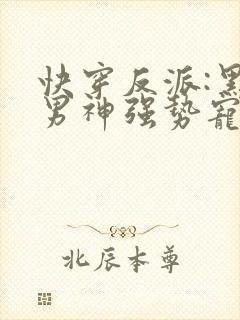 快穿反派:黑
男神强势寵
北辰本尊